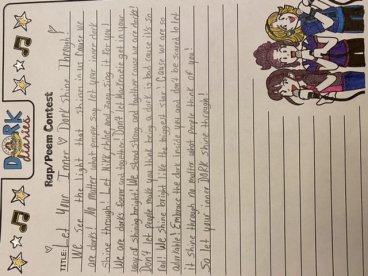 DORK
diaries
Rap/Poem Contest
TITLE: Let Your Inner Dork Shine Through!
We see the light that shines in us cause we
are dorks! No matter what people say let your inner dork
shine through! Let Nikki, chloe and Zoey sing it for you!
We are dorks forever and together! Don't let MacKenzie get in your
way of shining bright! We stand strong and together cause we are dorks!
Don't let people make you think being a dork is bad cause it's so
fab! We shine bright like the biggest star! Cause we are so
adorkable! Embrace the dork inside you and don't be scared to let
it shine through no matter what people think of you!
So let your inner DORK shine through!